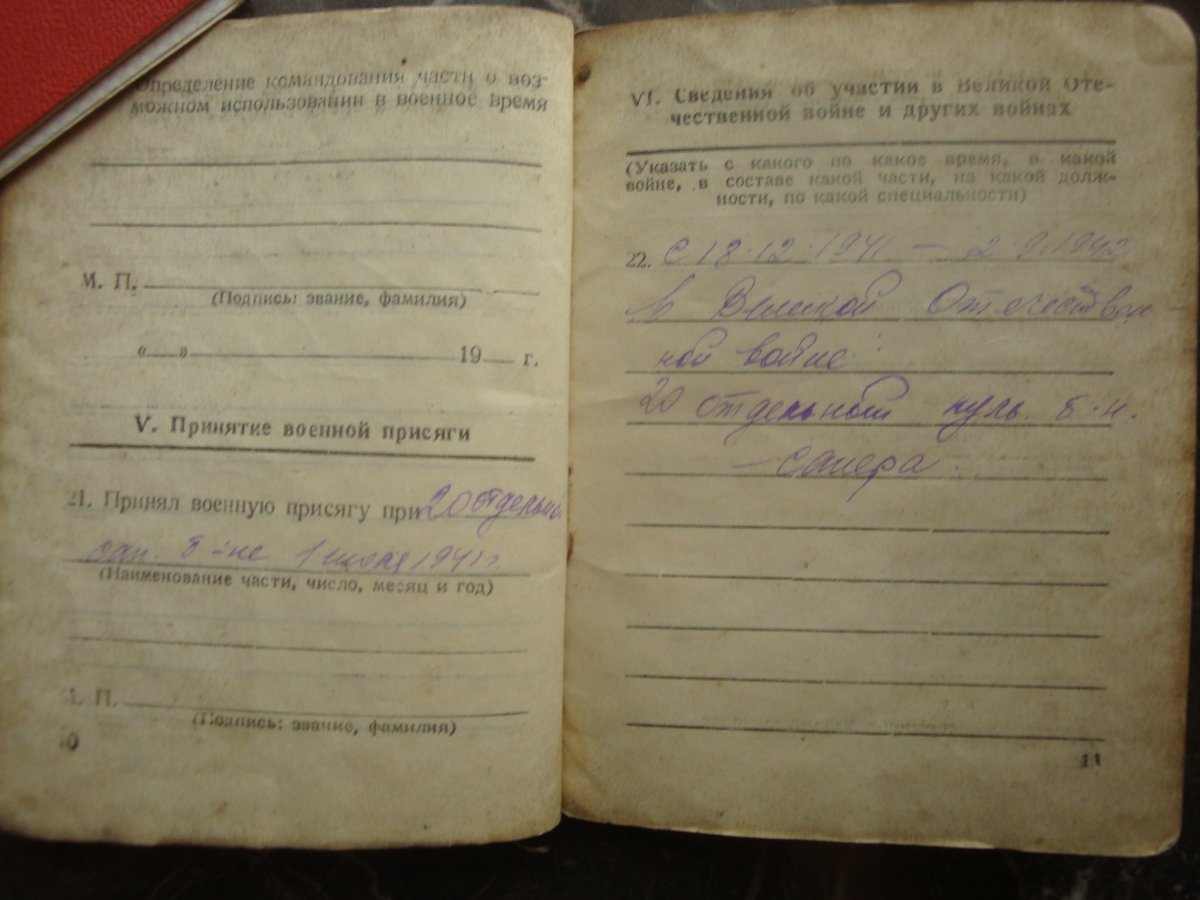 Определение командования части о воз-
можном использовании в военное время
М. П.
(Подпись: звание, фамилия)
«  »  19  г.
V. Принятие военной присяги
21. Принял военную присягу при 20 отдельном
сап. б-не 1 1941 г.
(Наименование части, число, месяц и год)
М. П.
(Подпись: звание, фамилия)
10
VI. Сведения об участии в Великой Оте-
чественной войне и других войнах
(Указать с какого по какое время, в какой
войне, в составе какой части, на какой долж-
ности, по какой специальности)
22. С 18.12.1941 — 2.9.1942
в Великой Отечествен-
ной войне
20 отдельный пуль. б-н.
— сапера.
11